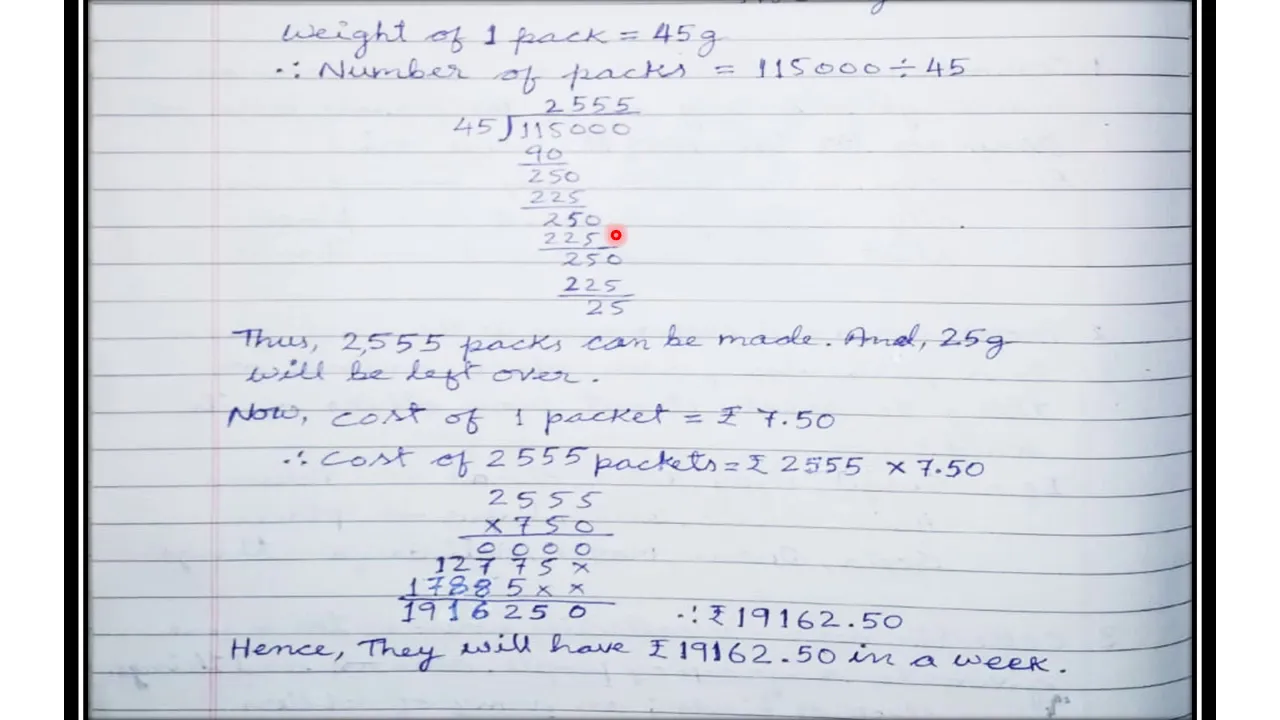 Weight of 1 pack = 45g
∴ Number of packs = 115000 ÷ 45
2555
45 ) 115000
90
250
225
250
225
250
225
25
Thus, 2,555 packs can be made. And, 25g
will be left over.
Now, cost of 1 packet = ₹ 7.50
∴ cost of 2555 packets = ₹ 2555 × 7.50
2555
×750
0000
12775×
17885××
1916250 ∴ ₹19162.50
Hence, They will have ₹19162.50 in a week.